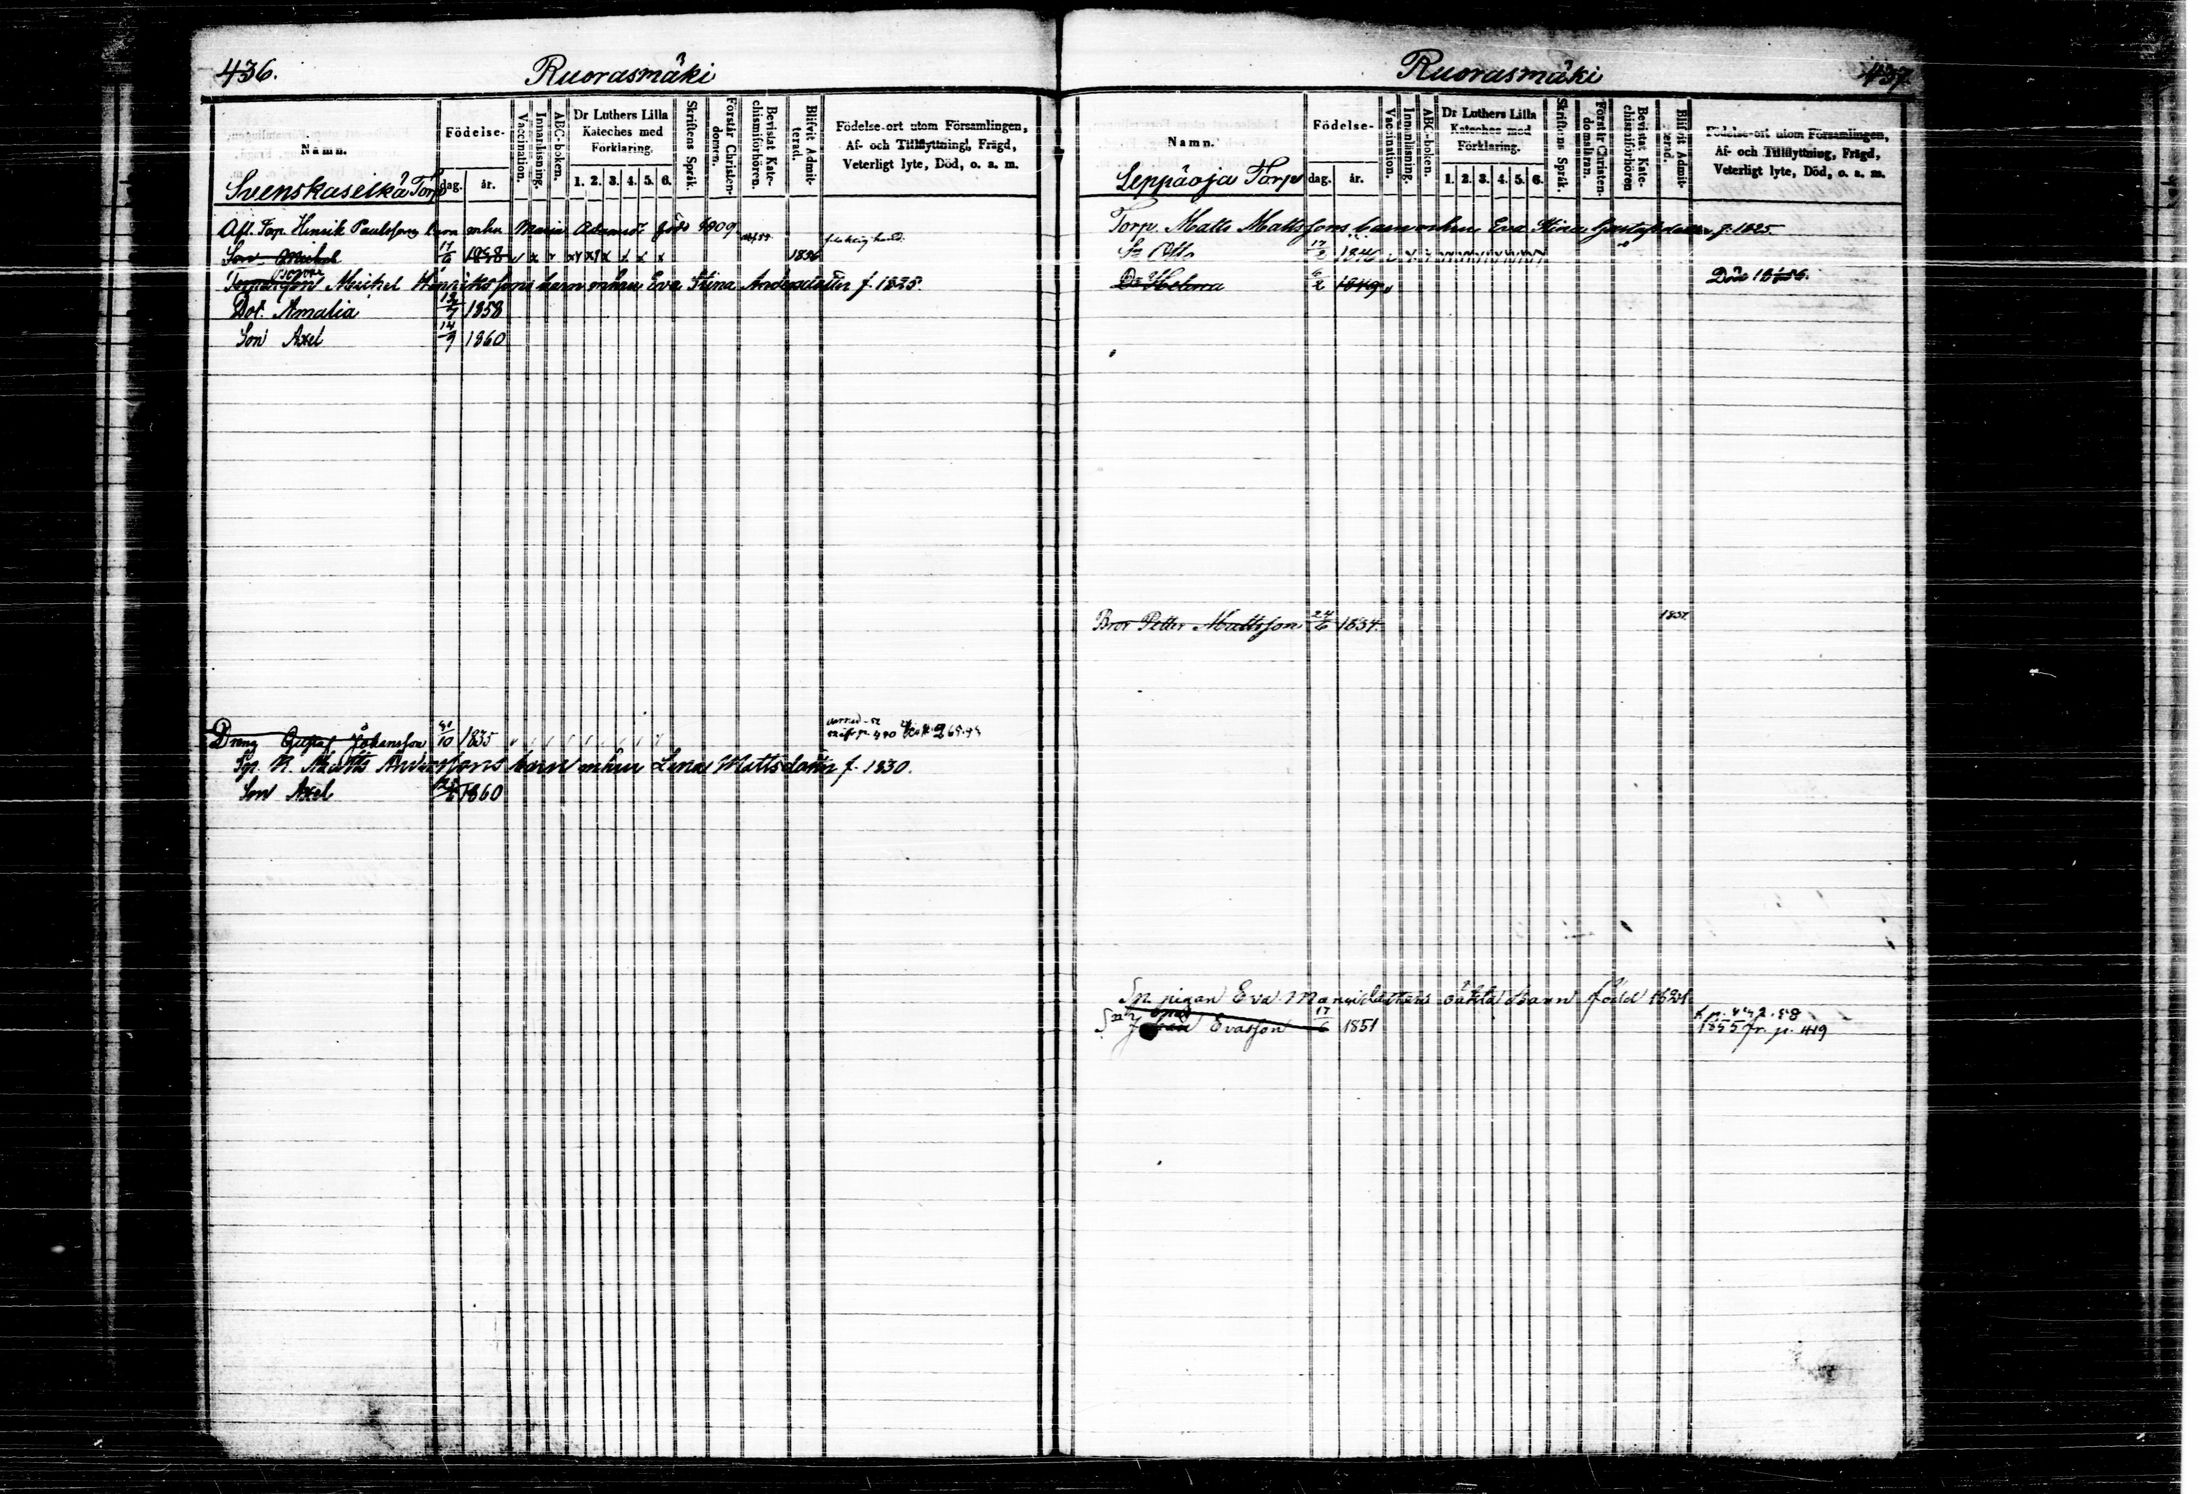 436.
Ruorasmäki
Namn.
Födelse-
dag.
år.
Vaccination.
Innanläsning.
ABC-boken.
Dr Luthers Lilla
Kateches med
Förklaring.
1. 2. 3. 4. 5. 6.
Skriftens Språk.
Förstår Christen-
domen.
Bevistat Kate-
chismiförhören.
Blifvit Admit-
terad.
Födelse-ort utom Församlingen,
Af- och Tillflyttning, Frägd,
Veterligt lyte, Död, o. a. m.
Svenskaselkä Torp
Afl. Torp. Henrik Paulssons barn m hu Maria Adamsd:r född 1809
Son Michel 17/6 1838 1856
Michel Henrikssons barn m hu Eva Stina Andersdotter f. 1835.
Dot. Amalia 13/7 1858
Son Axel 14/9 1860
Dreng Gustaf Johansson 31/10 1835
Matts Anderssons barn m hu Lena Mattsdotter f. 1830.
Son Axel 1860
Ruorasmäki
437.
Namn.
Födelse-
dag.
år.
Vaccination.
Innanläsning.
ABC-boken.
Dr Luthers Lilla
Kateches med
Förklaring.
1. 2. 3. 4. 5. 6.
Skriftens Språk.
Förstår Christen-
domsläran.
Bevistat Kate-
chismiförhören
Blifvit Admit-
terad.
Födelse-ort utom Församlingen,
Af- och Tillflyttning, Frägd,
Veterligt lyte, Död, o. a. m.
Leppäoja Torp
Torp. Matts Mattssons barn m hu Eva Stina Gustafsdotter f. 1825.
Sn Otto 17/3 1846
Dr Helena 6/2 1849 Död
Bror Petter Mattsson 24/6 1834. 1851.
pigan Eva oäkta Barn född
Evasson 17/6 1851 1855 fr. p. 419